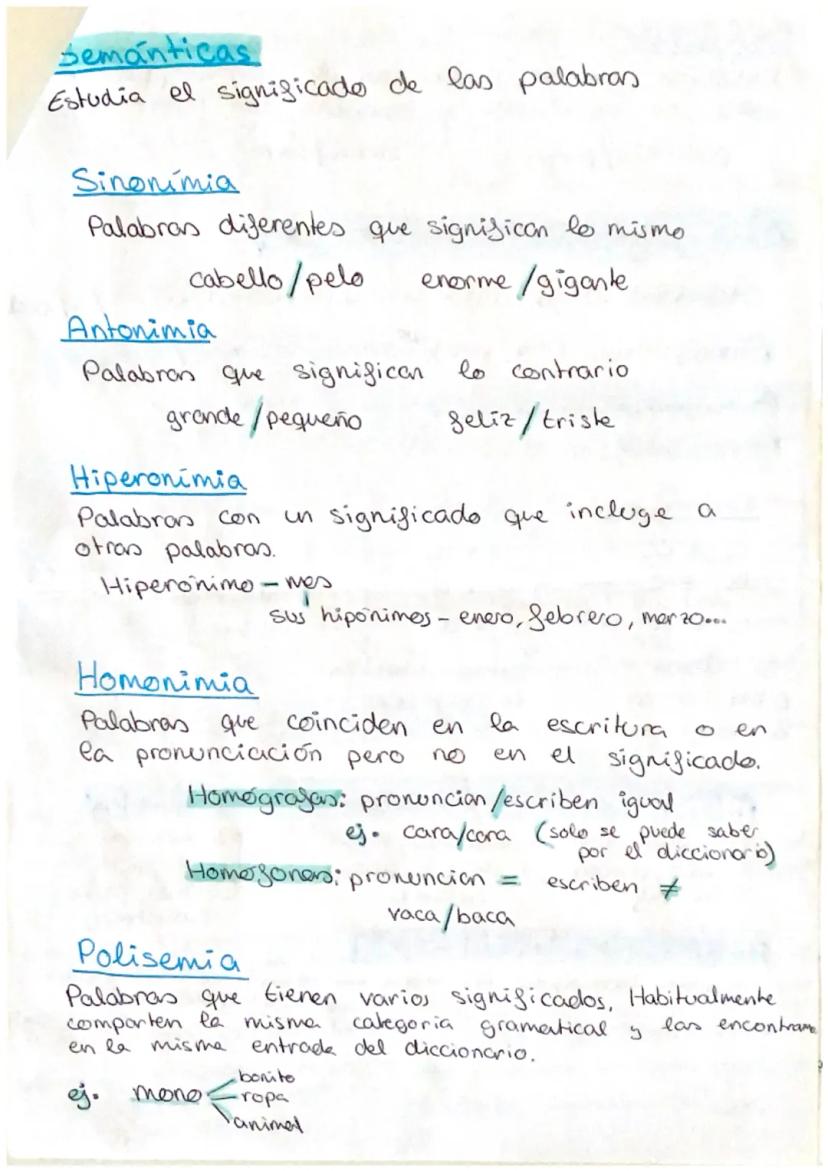 Semánticas
Estudia el significado de las palabras
Sinonímia
Palabras diferentes que significan lo mismo
cabello/pelo enorme/gigante
Antonimia
Palabras que significan lo contrario
grande/pequeño feliz/triste
Hiperonímia
Palabras con un significado que incluye a
otras palabras.
Hiperónimo - mes
sus hipónimos - enero, febrero, marzo...
Homonimia
Palabras que coinciden en la escritura o en
la pronunciación pero no en el significado.
Homógrafas: pronuncian/escriben igual
ej. cara/cara (solo se puede saber
por el diccionario)
Homófonas: pronuncian = escriben ≠
vaca/baca
Polisemia
Palabras que tienen varios significados, Habitualmente
comparten la misma categoria gramatical y las encontramo
en la misma entrada del diccionario.
bonito
ej. mono ropa
animal